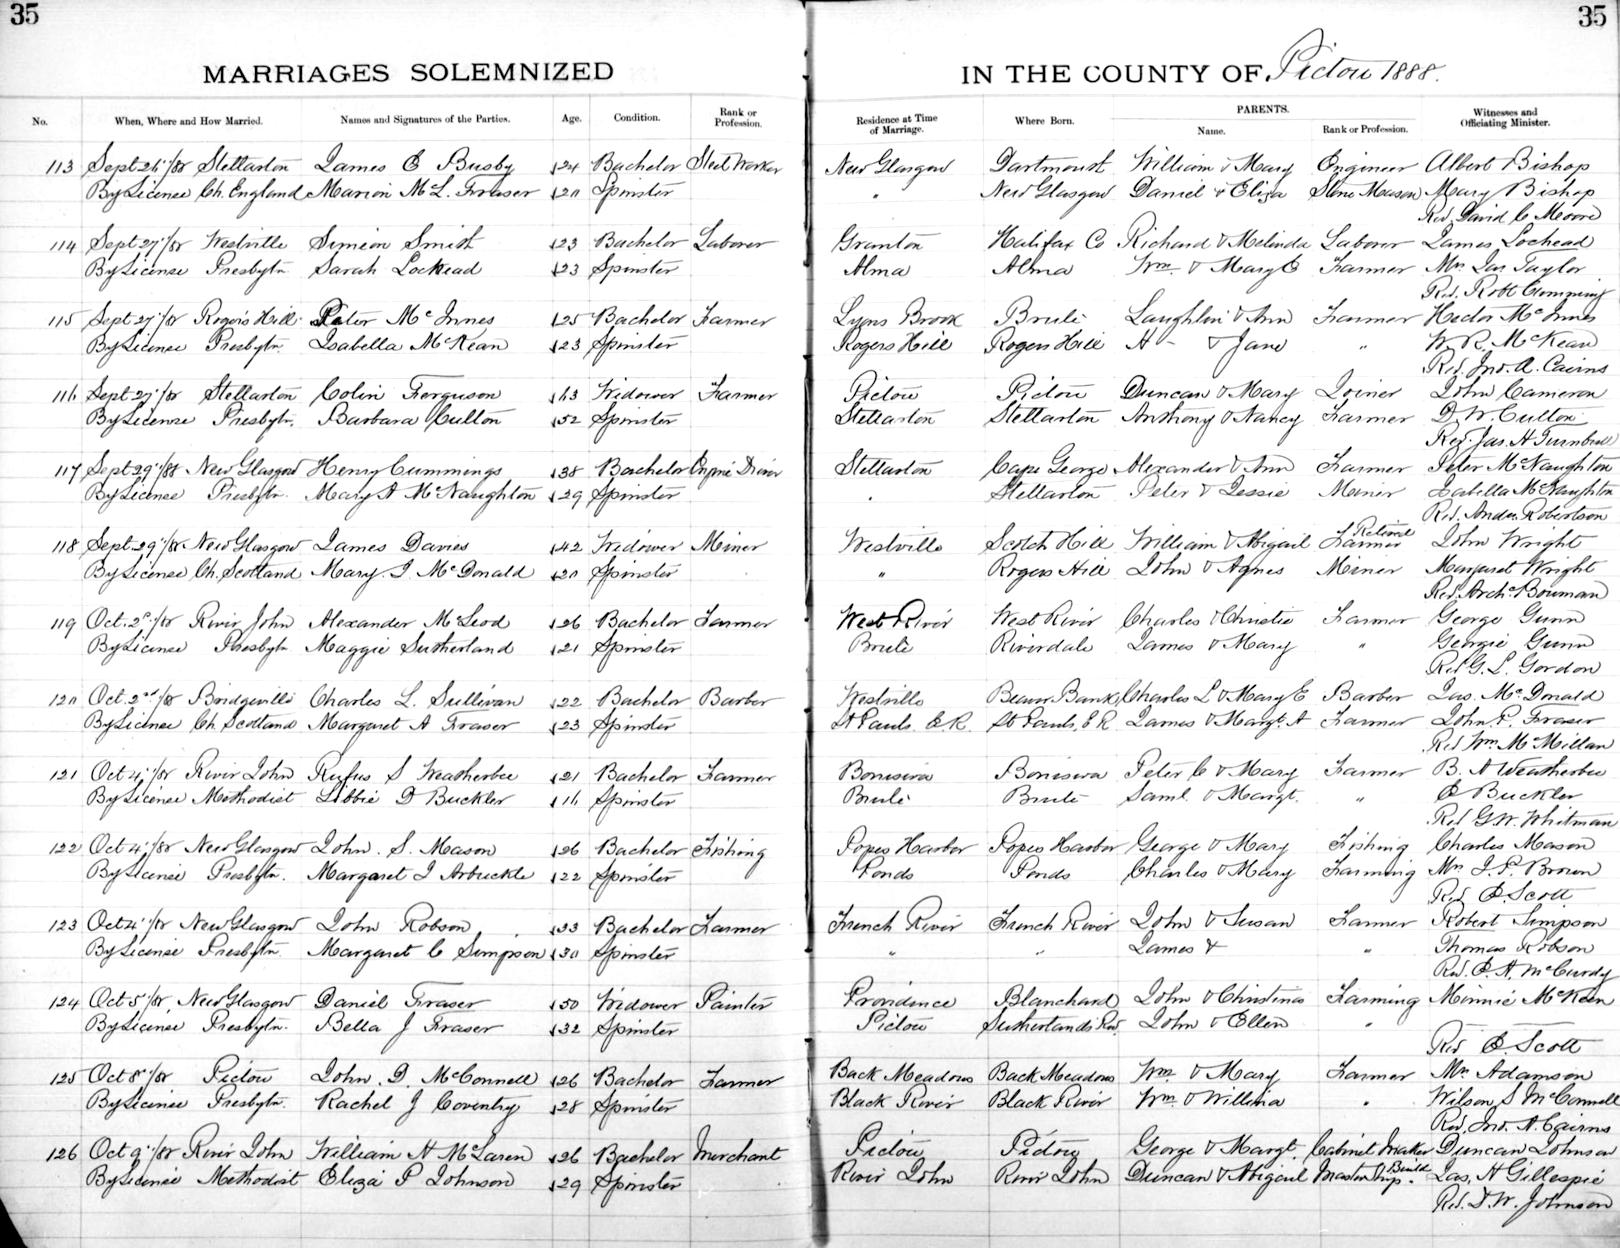 35
35
MARRIAGES SOLEMNIZED IN THE COUNTY OF Pictou 1888.
No. When, Where and How Married. Names and Signatures of the Parties. Age. Condition. Rank or Profession. Residence at Time of Marriage. Where Born. PARENTS. Name. Rank or Profession. Witnesses and Officiating Minister.
113 Sept 26th/88 Stellarton James E Busby 24 Bachelor Steel Worker New Glasgow Dartmouth William & Mary Engineer Albert Bishop
By License Ch. England Marion McL. Fraser 20 Spinster " New Glasgow Daniel & Eliza Stone Mason Mary Bishop
Rev. David C Moore
114 Sept 27th/88 Westville Simeon Smith 23 Bachelor Laborer Granton Halifax Co Richard & Melinda Laborer James Lochead
By License Presbytn Sarah Lockead 23 Spinster Alma Alma Wm. & Mary E Farmer Mrs Jas Taylor
Rev. Robt Cumming
115 Sept 27th/88 Rogers Hill Peter McInnes 25 Bachelor Farmer Lyons Brook Brule Laughlin & Ann Farmer Hector McInnes
By License Presbytn. Isabella McKean 23 Spinster Rogers Hill Rogers Hill H - & Jane " W. R. McKean
Rev. Jno. A. Cairns
116 Sept 27th/88 Stellarton Colin Ferguson 63 Widower Farmer Pictou Pictou Duncan & Mary Joiner John Cameron
By License Presbytn. Barbara Culton 52 Spinster Stellarton Stellarton Anthony & Nancy Farmer D. W. Culton
Rev. Jas. A Turnbull
117 Sept 29th/88 New Glasgow Henry Cummings 38 Bachelor Engine Driver Stellarton Cape George Alexander & Ann Farmer Peter McNaughton
By License Presbytn. Mary A McNaughton 29 Spinster " Stellarton Peter & Jessie Miner Isabella McNaughton
Rev. Andw Robertson
118 Sept 29th/88 New Glasgow James Davies 42 Widower Miner Westville Scotch Hill William & Abigail Retired Farmer John Wright
By License Ch. Scotland Mary J. McDonald 20 Spinster " Rogers Hill John & Agnes Miner Margaret Wright
Rev. Archd Bowman
119 Oct. 2d/88 River John Alexander McLeod 26 Bachelor Farmer West River West River Charles & Christie Farmer George Gunn
By License Presbytn Maggie Sutherland 21 Spinster Brule Riverdale James & Mary " Georgie Gunn
Rev G. L. Gordon
120 Oct. 2nd/88 Bridgeville Charles L. Sullivan 22 Bachelor Barber Westville Beaver Bank Charles L & Mary E Barber Jas. McDonald
By License Ch Scotland Margaret A Fraser 23 Spinster St Pauls E.R. St Pauls, E R James & Margt. A Farmer John F. Fraser
Rev Wm. McMillan
121 Oct 4th/88 River John Rufus S Weatherbee 21 Bachelor Farmer Peter C & Mary Farmer B. A Weatherbee
By License Methodist Libbie D Buckler 16 Spinster Brule Brule Saml. & Margt. " E Buckler
Rev G. W. Whitman
122 Oct 4th/88 New Glasgow John. S. Mason 26 Bachelor Fishing Popes Harbor Popes Harbor George & Mary Fishing Charles Mason
By License Presbytn. Margaret J Arbuckle 22 Spinster Ponds Ponds Charles & Mary Farming Mrs J. P. Brown
Rev. E Scott
123 Oct 4th/88 New Glasgow John Robson 33 Bachelor Farmer French River French River John & Susan Farmer Robert Simpson
By License Presbytn. Margaret C Simpson 30 Spinster " " James & " Thomas Robson
Rev. E. A. McCurdy
124 Oct 5th/88 New Glasgow Daniel Fraser 50 Widower Painter Providence Blanchard John & Christina Farming Minnie McKeen
By License Presbytn. Bella J Fraser 32 Spinster Pictou Sutherlands Riv. John & Ellen "
Rev E Scott
125 Oct 8th/88 Pictou John. D. McConnell 26 Bachelor Farmer Back Meadows Back Meadows Wm. & Mary Farmer Mr. Adamson
By License Presbytn. Rachel J Coventry 28 Spinster Black River Black River Wm. & Willina " Wilson S McConnell
Rev. Jno. A. Cairns
126 Oct 9th/88 River John William A McLaren 26 Bachelor Merchant Pictou Pictou George & Margt. Cabinet Maker Duncan Johnson
By License Methodist Eliza P Johnson 29 Spinster River John River John Duncan & Abigail Master Ship. Build Jas, A Gillespie
Rev. D. W. Johnson